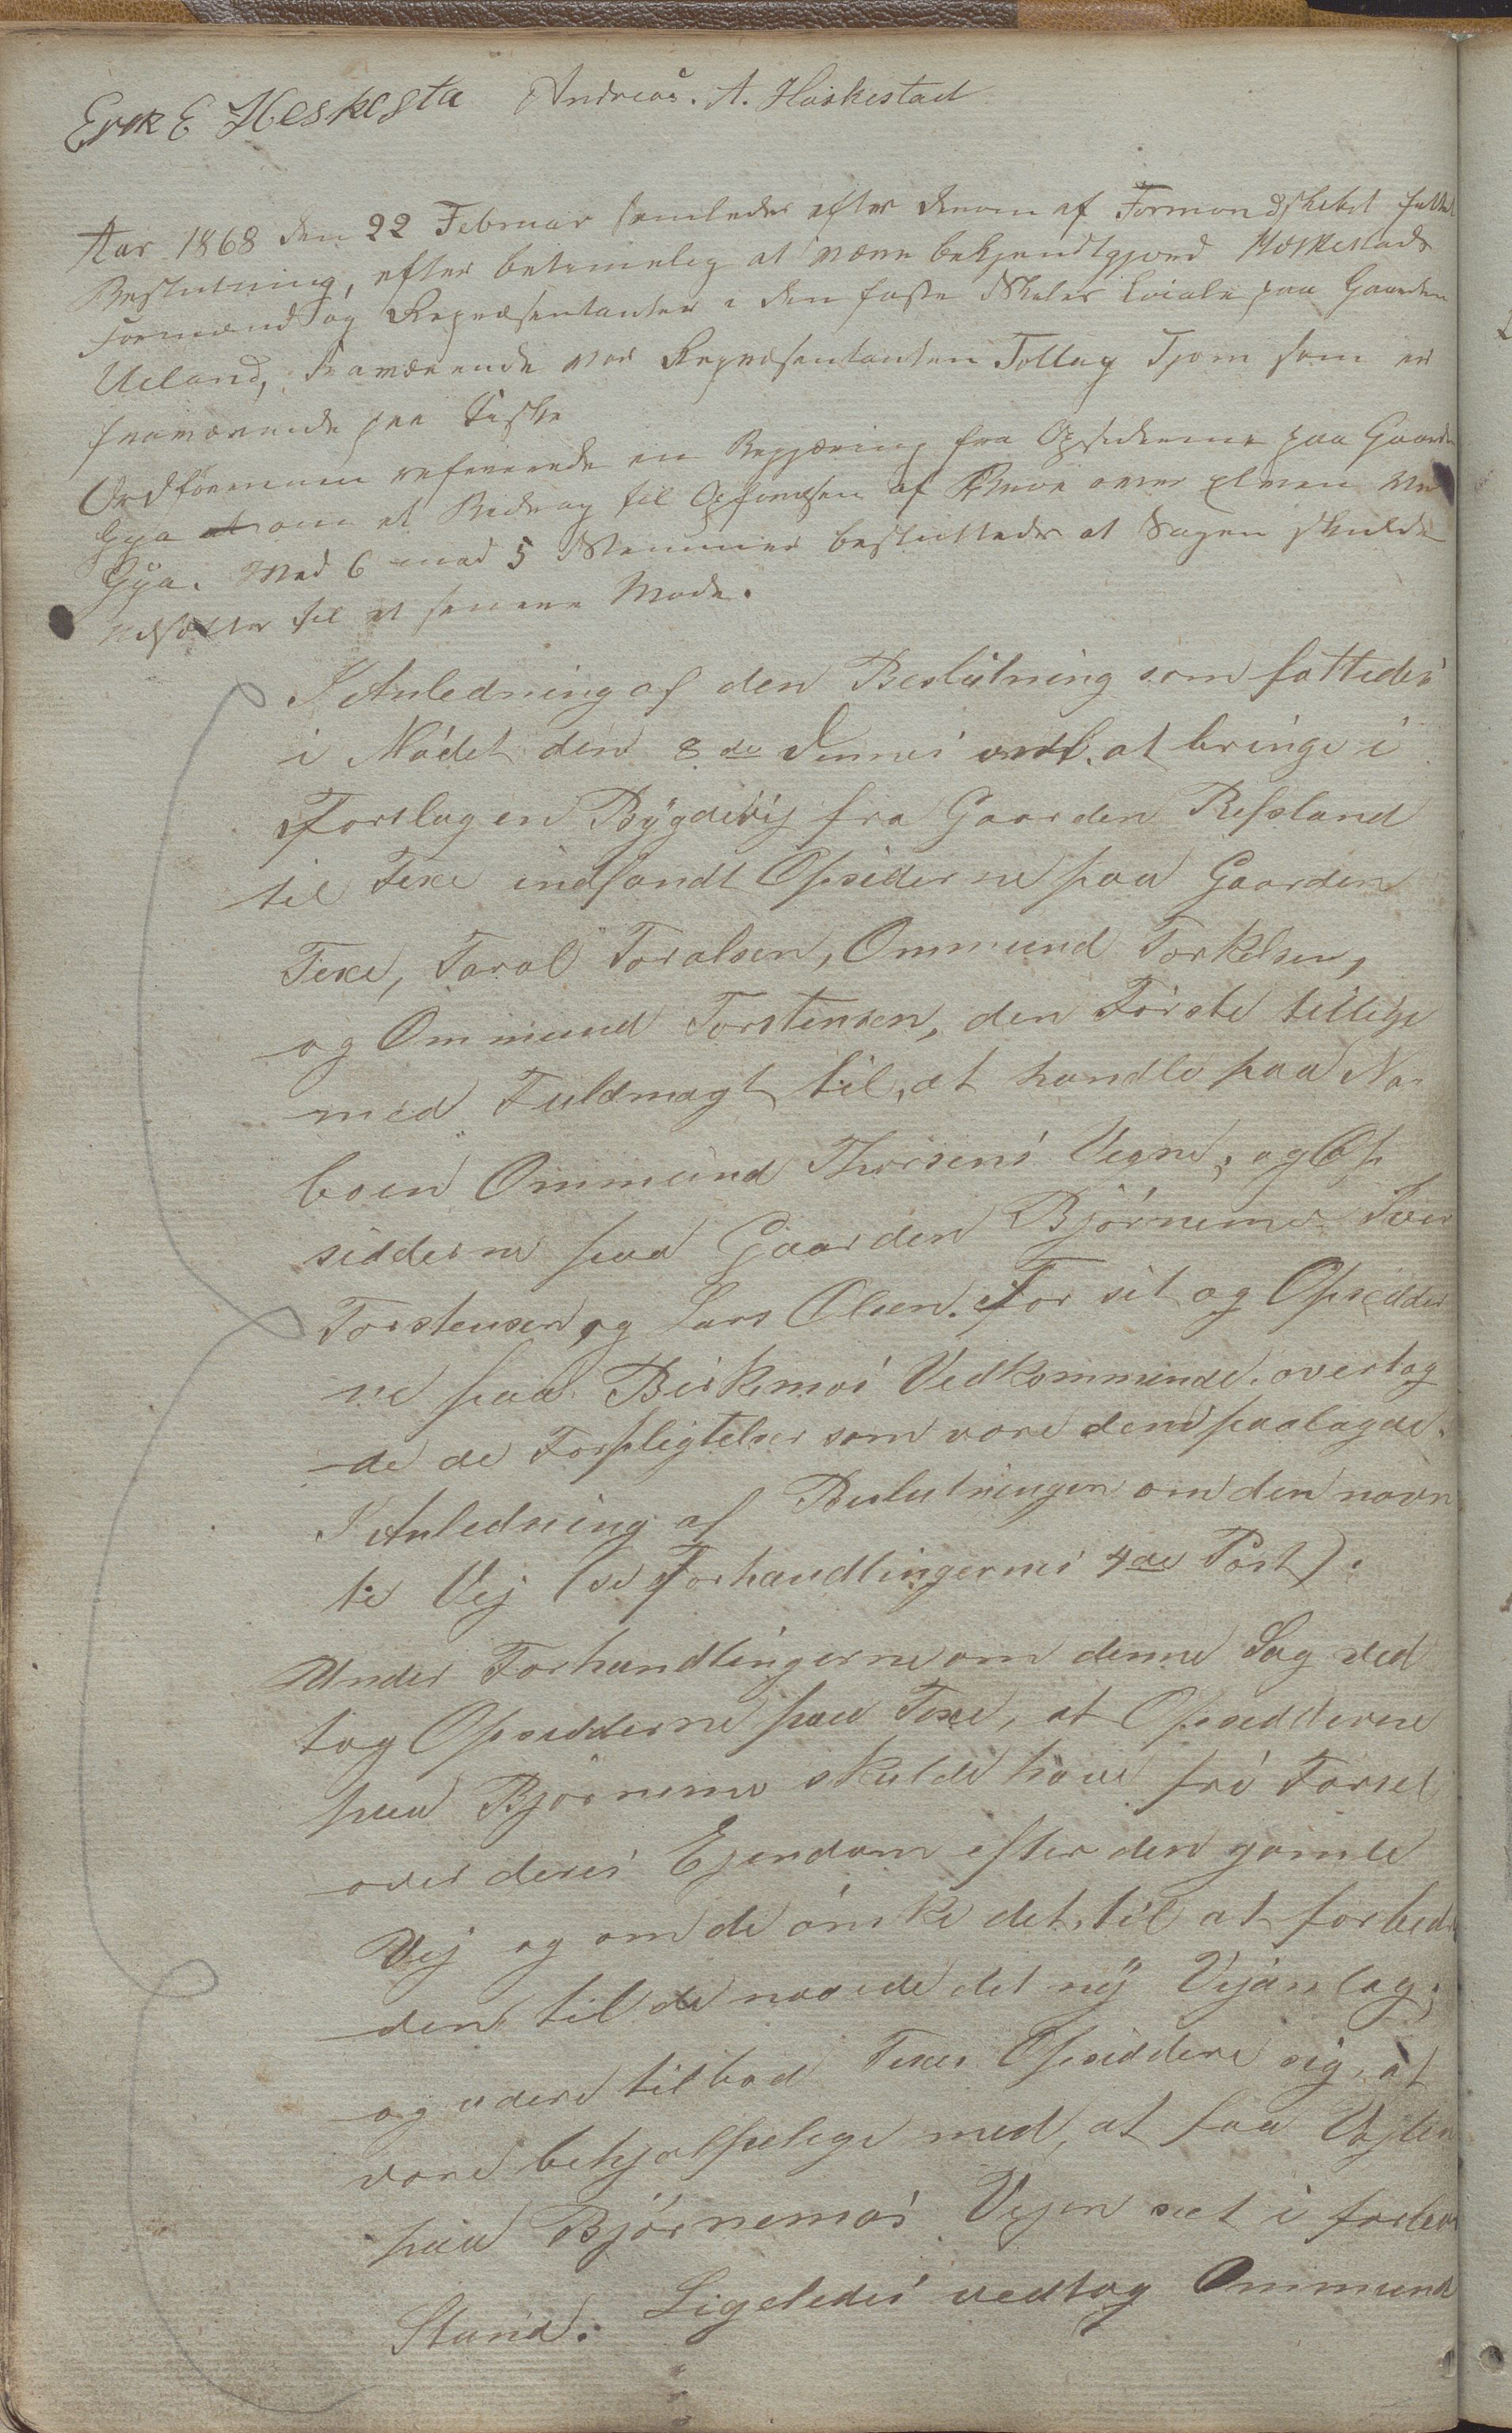 Erik E Heskesta Andreas. A. Häskestad
Aar 1868 den 22 Februar samledes efter derom af Formandskabet fattet
Beslutning, efter betimelig at være bekjendtgjord Heskestads
Formænd og Repræsentanter i den faste Skoles Locale paa Gaarden
Ueland, Fraværende var Repræsentanten Tollag Tjorn som er
fraværende paa Fiske
Ordføreren refererede en Begjæring fra Opsiderne paa Gaarden
Gya om et Bidrag til Opførelsen af Broe over Elven ved
Gya. Med 6 mod 5 Stemmer besluttedes at Sagen skulde
udsættes til et senere Møde.
I Anledning af den Beslutning som fattedes
i Mödet den 8de Dennes ved at bringe i
Forslag en Bygdevij fra Gaarden Refsland
til Texe indfandt Opsiderne paa Gaarden
Texe, Taral Toralsen, Ommund Torkelsen,
og Ommund Torstensen, den Förste tillige
med Fuldmagt til, at handle paa Na-
boen Ommund Thorsens Vegne; og Op
sidderne paa Gaarden Björnemo Iver
Torstensen, og Lars Olsen. For sit og Opsidder
ne paa Birkemos Vedkommende. overtog
de de Forpligtelser som vare dem paalagde.
I Anledning af Beslutningen om den nævn
te Vej (se Forhandlingernes 4de Post).
Under Forhandlingerne om denne Sag ved
tog Opsidderne paa Texe, at Opsidderne
paa Björnemo skulde have fri Færsel
over deres Ejendom efter den gamle
Vej og om de önske det, til at forbedre
den, til de naaede det ny Vejanlæg;
og videre tilbød Texes Opsiddere sig, at
være behjælpelige med, at faa
paa Björnemos Vejen sat i forsvar
Stand. Ligeledes vedtog Ommund